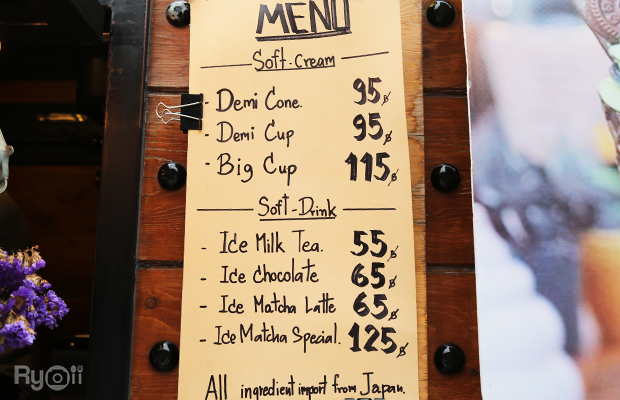 MENU
Soft-Cream
- Demi Cone. 95฿
- Demi Cup 95฿
- Big Cup 115฿
Soft-Drink
- Ice Milk Tea. 55฿
- Ice Chocolate 65฿
- Ice Matcha Latte 65฿
- Ice Matcha Special. 125฿
All ingredient import from Japan.
Ryoii